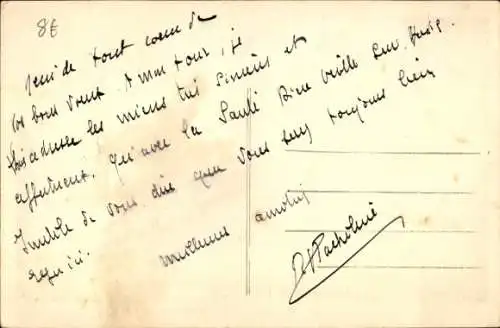 8€
de tout coeur de
vos bons voeux. A mon tour, je
vous adresse les miens très sincères et
affectueux. Qu'avec la Santé Dieu veille sur
Inutile de vous dire que vous serez toujours bien
reçu ici.
Meilleures amitiés